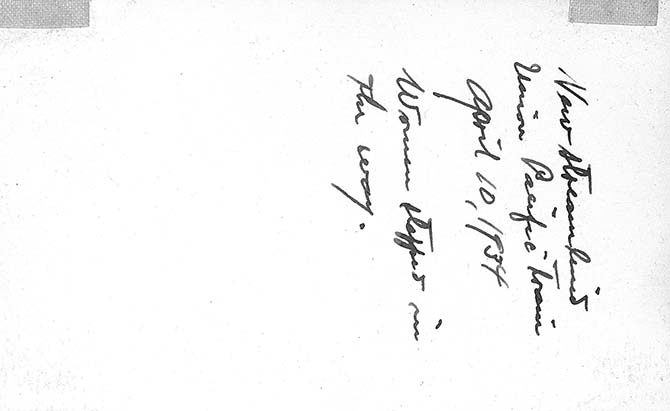 New streamlined
Union Pacific train
April 10, 1934
Women stepped in
the way.